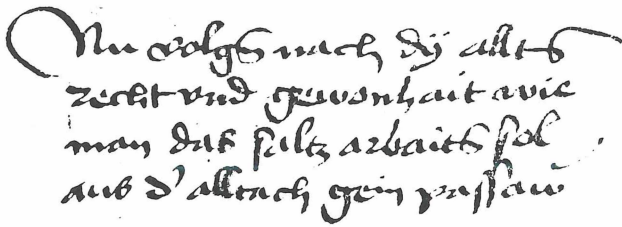 Nu volgt nach dÿ allt
recht vnd gewonhait wie
man das saltz arbaitt sol
aus d' alltach gein passaw